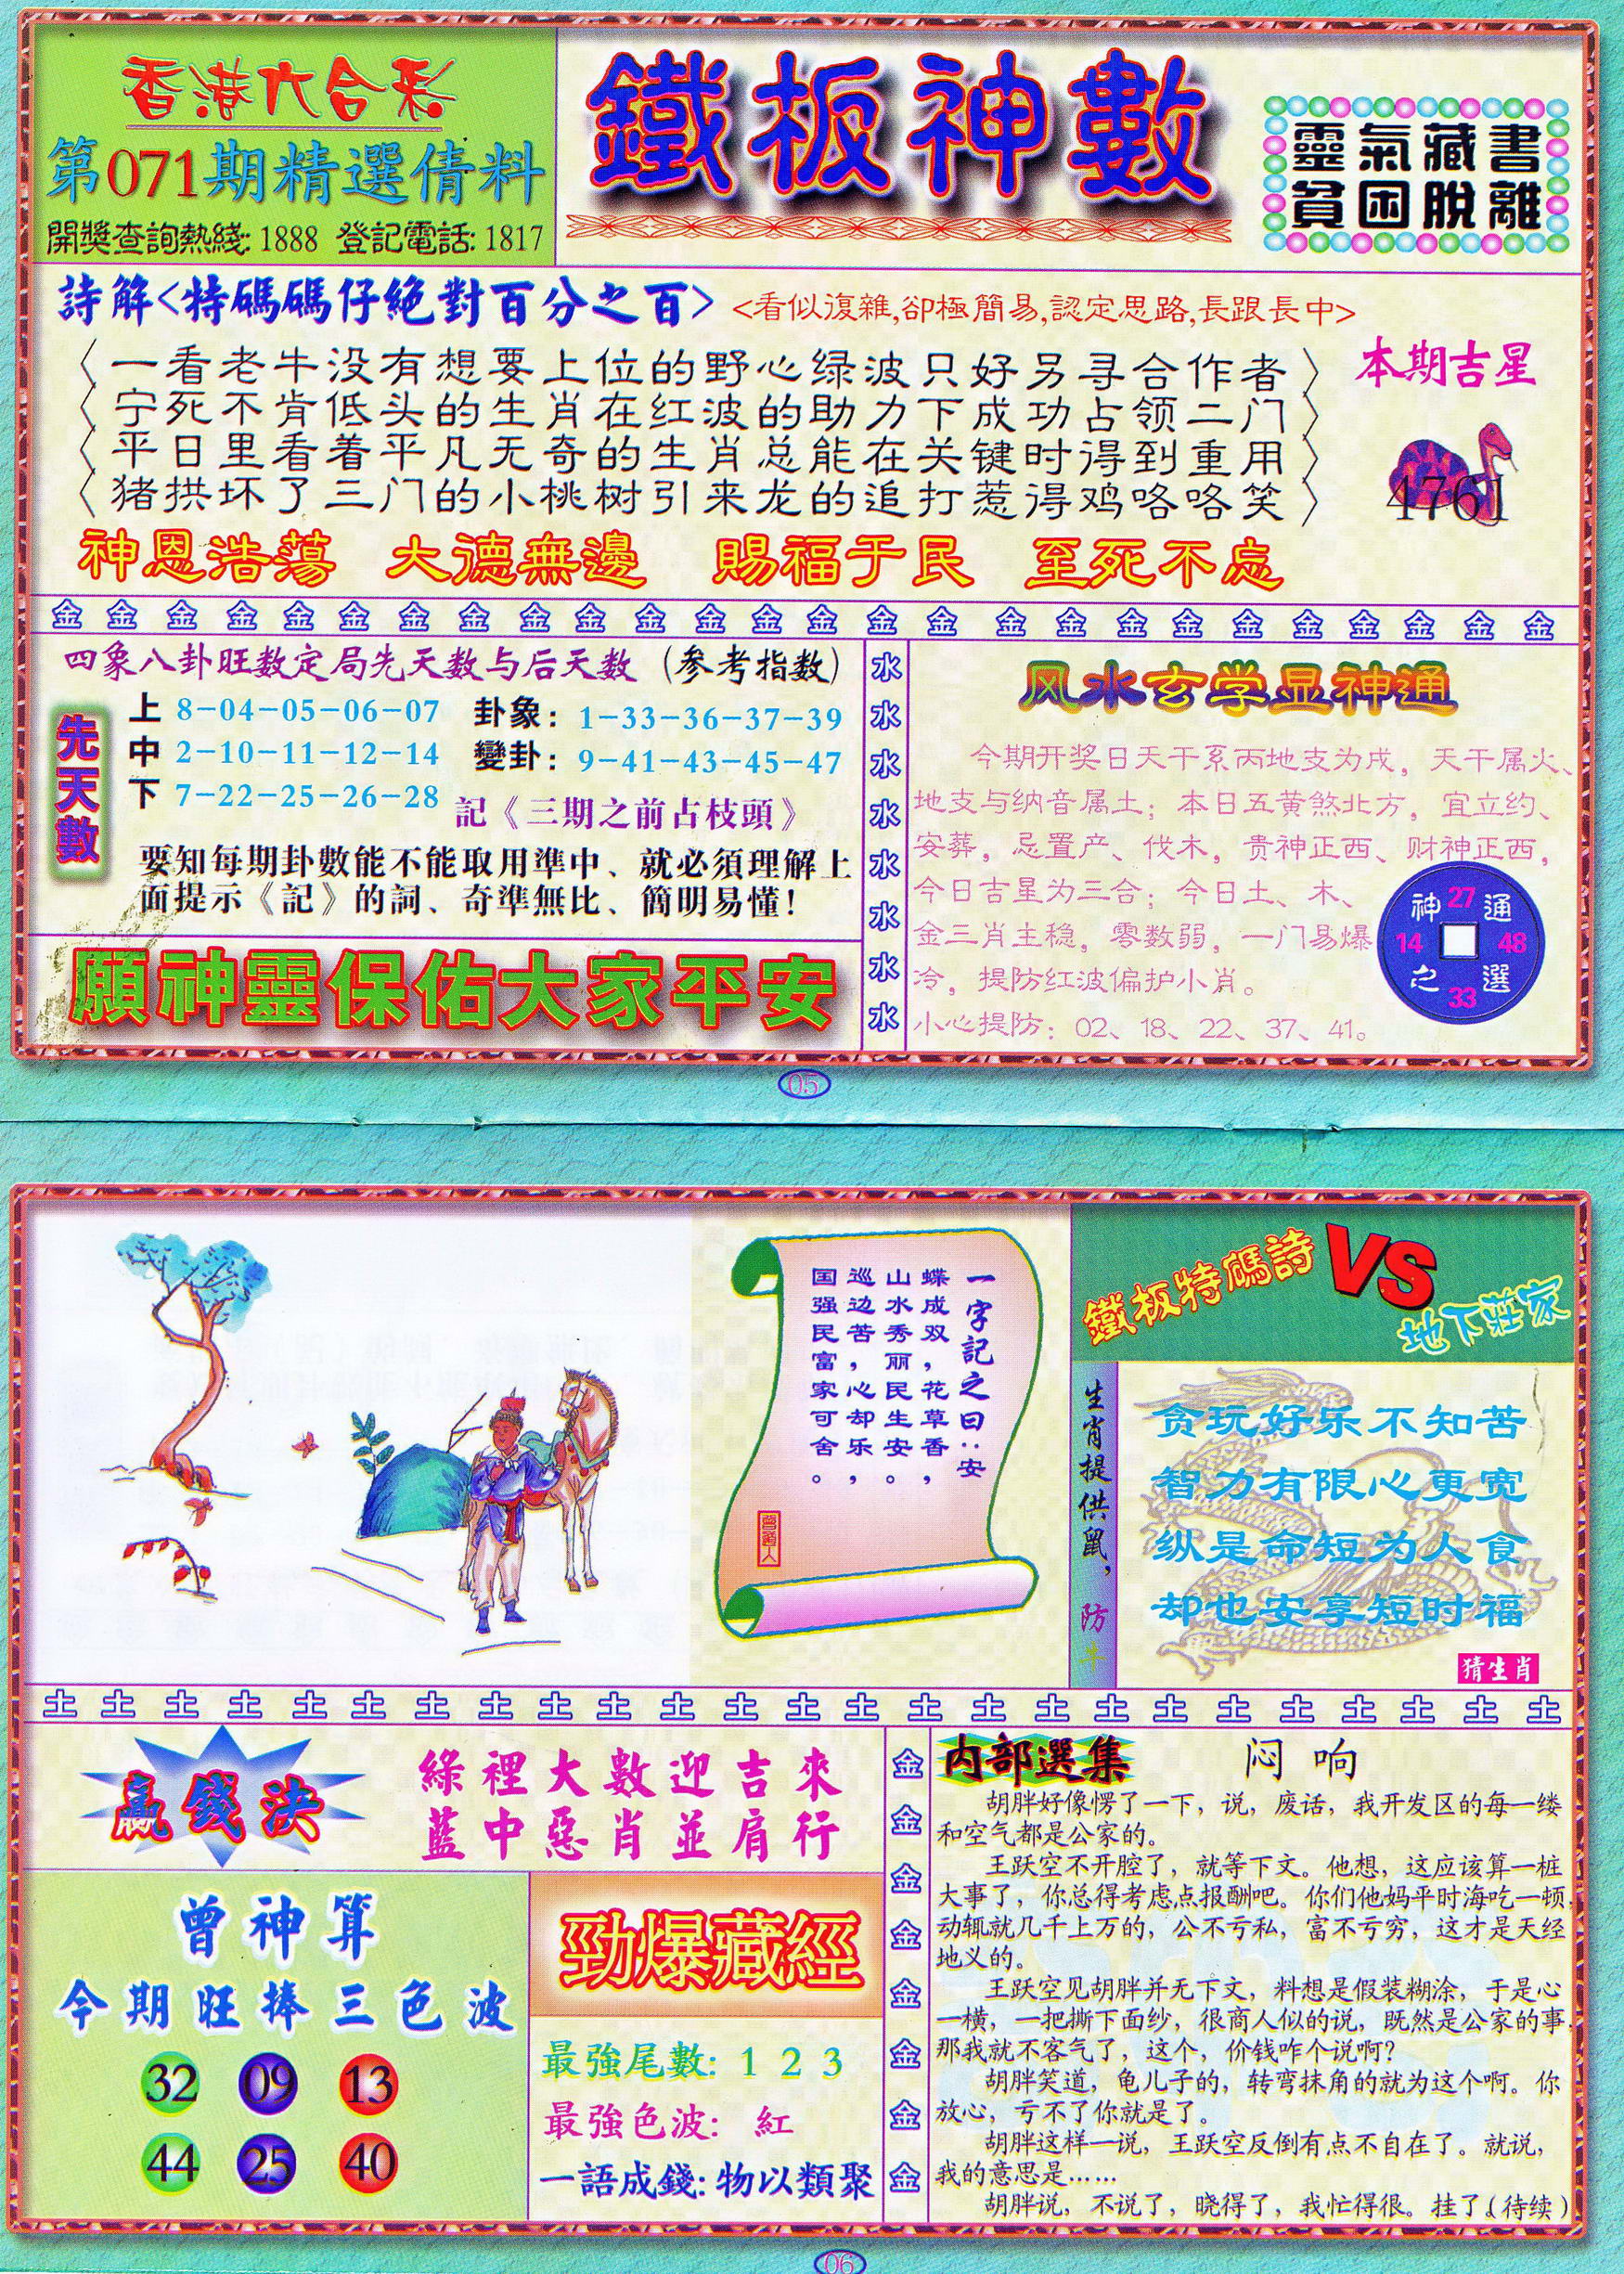 香港六合彩
第071期精選倩料
開獎查詢熱綫: 1888 登記電話: 1817
鐵板神數
靈氣藏書
貧困脫離
詩解<特碼碼仔絕對百分之百>
<看似復雜,卻極簡易,認定思路,長跟長中>
〈一看老牛没有想要上位的野心绿波只好另寻合作者〉
〈宁死不肯低头的生肖在红波的助力下成功占领二门〉
〈平日里看着平凡无奇的生肖总能在关键时得到重用〉
〈猪拱坏了三门的小桃树引来龙的追打惹得鸡咯咯笑〉
本期吉星
4761
神恩浩蕩 大德無邊 賜福于民 至死不忘
金 金 金 金 金 金 金 金 金 金 金 金 金 金 金 金 金 金 金 金 金 金 金 金 金 金
四象八卦旺数定局先天数与后天数（参考指数）
先天數
上 8-04-05-06-07 卦象：1-33-36-37-39
中 2-10-11-12-14 變卦：9-41-43-45-47
下 7-22-25-26-28
記《三期之前占枝頭》
要知每期卦數能不能取用準中、就必須理解上
面提示《記》的詞、奇準無比、簡明易懂！
願神靈保佑大家平安
水
水
水
水
水
水
水
水
风水玄学显神通
今期开奖日天干系丙地支为戌，天干属火、
地支与纳音属土；本日五黄煞北方，宜立约、
安葬，忌置产、伐木，贵神正西、财神正西，
今日吉星为三合；今日土、木、
金三肖主稳，零数弱，一门易爆
冷，提防红波偏护小肖。
小心提防：02、18、22、37、41。
神 27 通
14 48
之 33 選
05
一字記之曰：安
蝶成双，花草香，
山水秀丽，民生安。
巡边苦，心却乐，
国强民富家可舍。
曾道人
鐵板特碼詩 VS 地下莊家
生肖提供鼠，防牛
贪玩好乐不知苦
智力有限心更宽
纵是命短为人食
却也安享短时福
猜生肖
土 土 土 土 土 土 土 土 土 土 土 土 土 土 土 土 土 土 土 土 土 土 土 土 土
贏錢決
綠裡大數迎吉來
藍中惡肖並肩行
曾神算
今期旺捧三色波
32 09 13
44 25 40
勁爆藏經
最強尾數: 1 2 3
最強色波: 紅
一語成錢: 物以類聚
金
金
金
金
金
金
金
金
内部選集 闷响
胡胖好像愣了一下，说，废话，我开发区的每一缕
和空气都是公家的。
王跃空不开腔了，就等下文。他想，这应该算一桩
大事了，你总得考虑点报酬吧。你们他妈平时海吃一顿，
动辄就几千上万的，公不亏私，富不亏穷，这才是天经
地义的。
王跃空见胡胖并无下文，料想是假装糊涂，于是心
一横，一把撕下面纱，很商人似的说，既然是公家的事，
那我就不客气了，这个，价钱咋个说啊？
胡胖笑道，龟儿子的，转弯抹角的就为这个啊。你
放心，亏不了你就是了。
胡胖这样一说，王跃空反倒有点不自在了。就说，
我的意思是……
胡胖说，不说了，晓得了，我忙得很。挂了（待续）
06